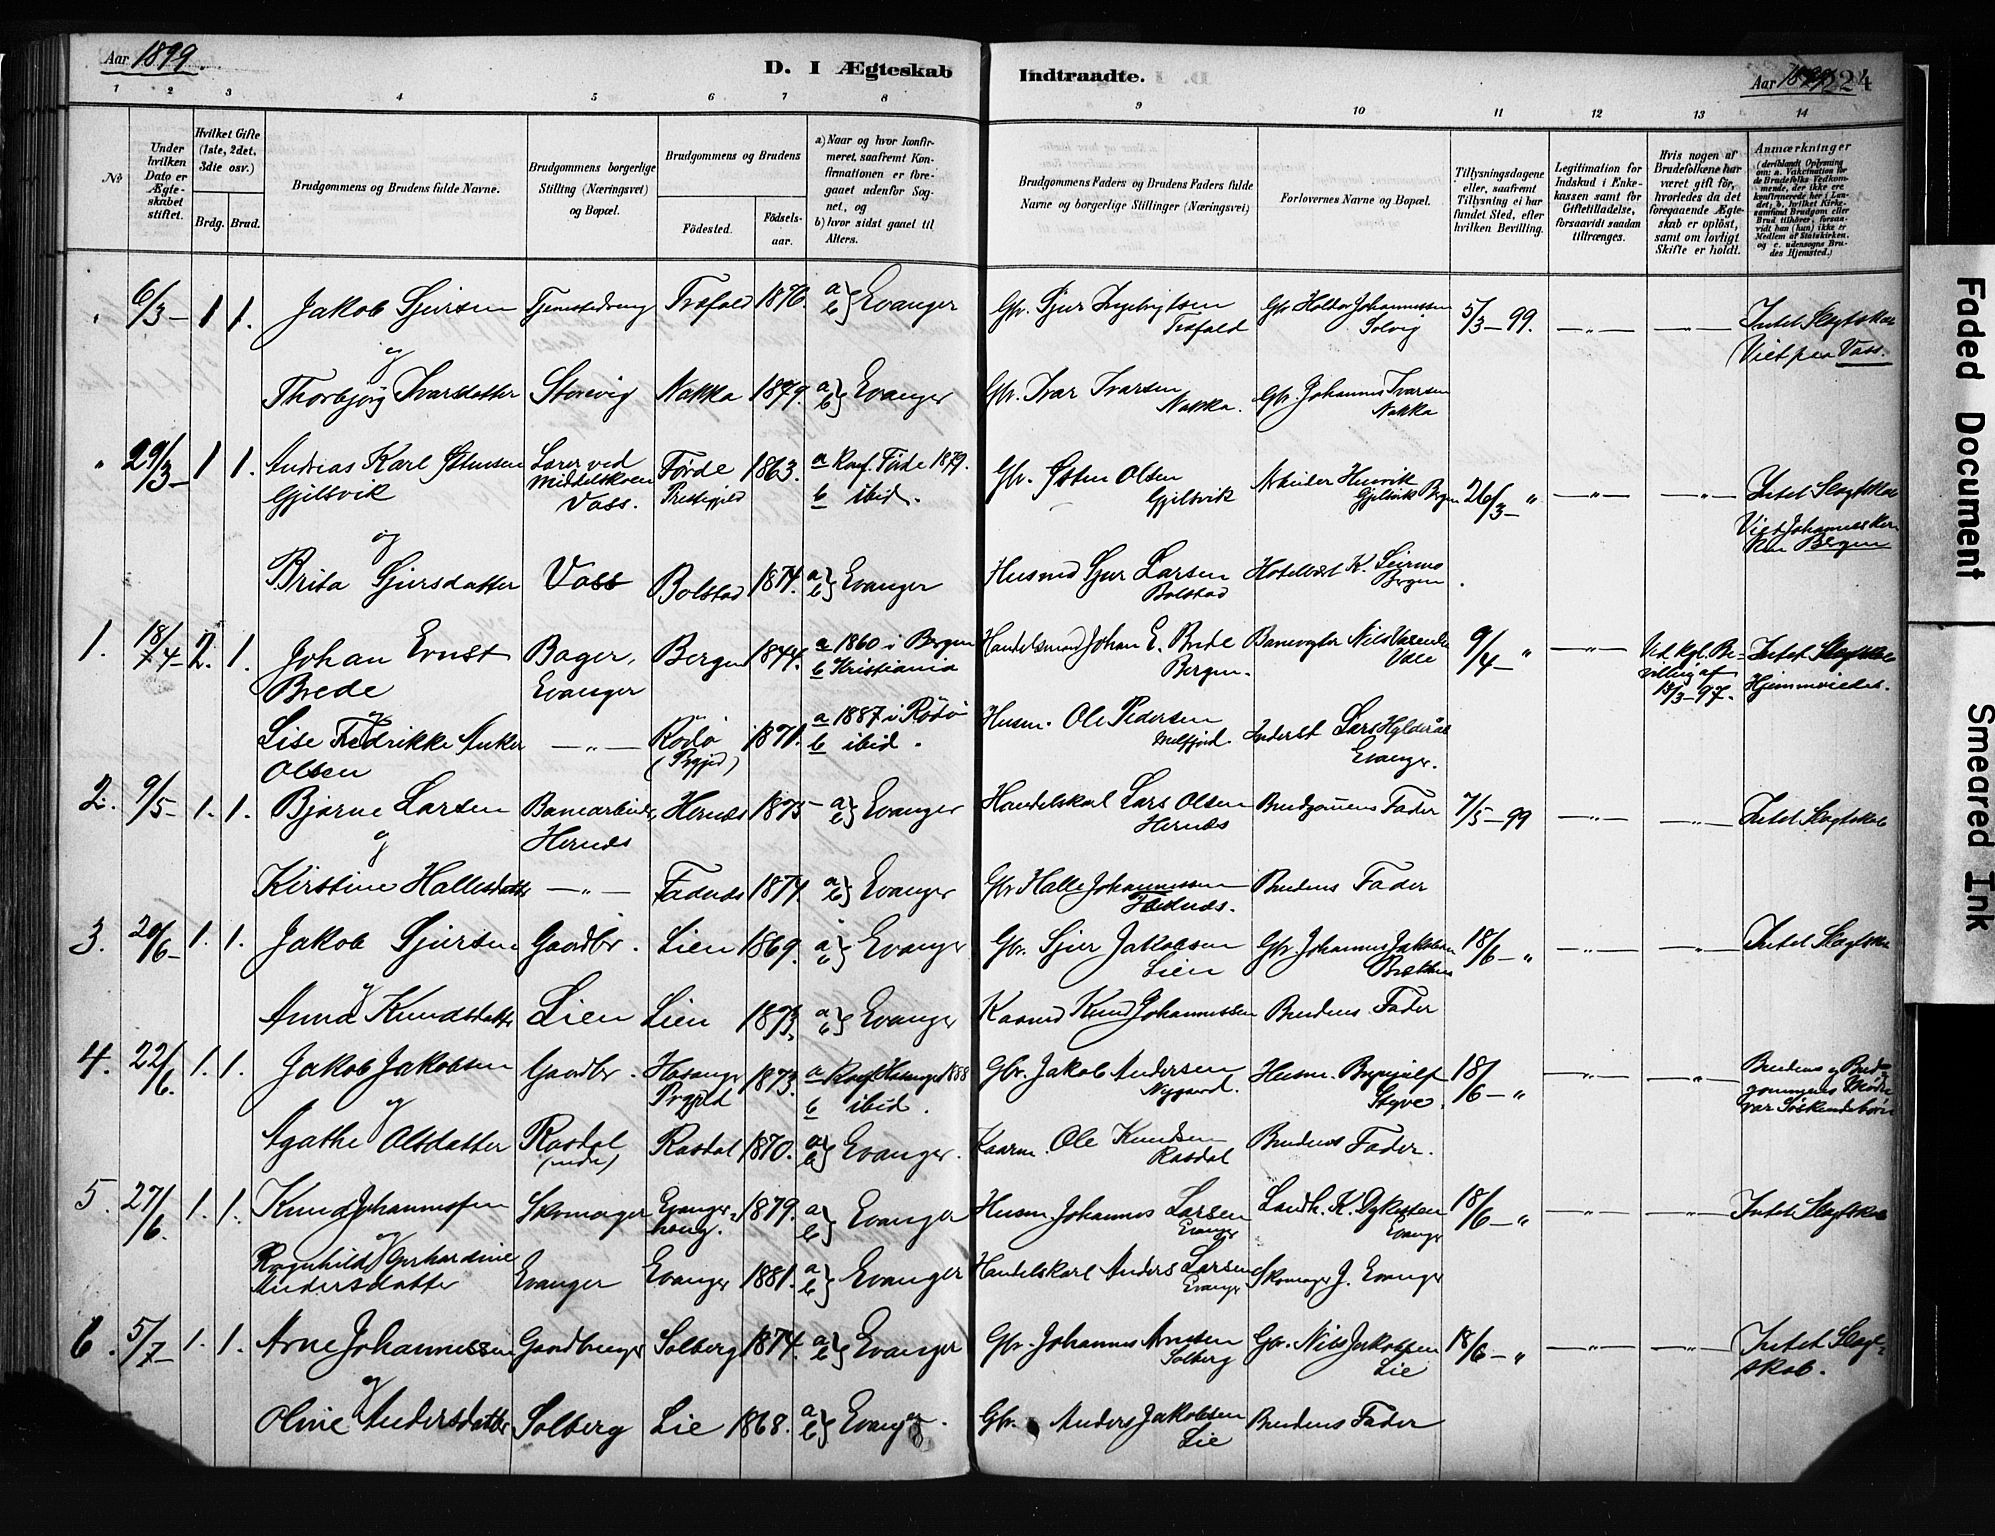 Aar 1899.
D. I Ægteskab
Indtraadte.
Aar 1899. 224
1 2 3 4 5 6 7 8 9 10 11 12 13 14
No
Under hvilken Dato er Ægteskabet stiftet.
Hvilket Gifte (1ste, 2det, 3die osv.)
Brdg. Brud.
Brudgommens og Brudens fulde Navne.
Brudgommens borgerlige Stilling (Næringsvei) og Bopæl.
Brudgommens og Brudens
Fødested. Fødselsaar.
a) Naar og hvor konfirmeret, saafremt Konfirmationen er foregaaet udenfor Sognet, og
b) hvor sidst gaaet til Alters.
Brudgommens Faders og Brudens Faders fulde Navne og borgerlige Stillinger (Næringsvei)
Forlovernes Navne og Bopæl.
Tillysningsdagene eller, saafremt Tillysning ei har fundet Sted, efter hvilken Bevilling.
Legitimation for Indskud i Enkekassen samt for Giftetilladelse, forsaavidt saadan tiltrænges.
Hvis nogen af Brudefolkene har været gift før, hvorledes da det foregaaende Ægteskab er opløst, samt om lovligt Skifte er holdt.
Anmærkninger
" 6/3 1 1. Jakob Sjursen Tjenestedreng Træfald 1876. a b} Evanger Gbr. Sjur Ingebrigtsen Træfald Gbr Haldor Johannessen Solvig 5/3-99. —"— —"— Intet Slægtskab Viet paa Vass.
og
Thorbjørg Ivarsdatter Storevig Nakka 1879. a b} Evanger Gbr. Ivar Ivarsen Nakka. Gbr. Johannes Ivarsen Nakka
" 29/3 1 1. Andreas Karl Østensen Gjelsvik Lærer ved Middelskolen Vass. Førde Prestegjeld 1863. a Konf. Førde 1879. b ibid. Gbr. Østen Olsen Gjelsvik Henrik Gjelsvik Bergen 26/3 - " —"— —"— Intet Slægtskab Viet Johanneskirken Bergen
og
Brita Sjursdatter Vass Bolstad 1874. a b} Evanger Husmd Sjur Larsen Bolstad Hotelvært K. Leirmo Bergen.
1. 18/4 2. 1. Johan Ernst Brede Bager, Evanger Bergen 1844. a 1860 i Bergen b Kristiania Handelsmand Johan E. Brede Bergen. Banevogter Nils 9/4 " —"— Ved kgl. Bevilling af 15/3-97. Intet Slægtskab Hjemmeviedes.
og
Lise Fredrikke Anker Olsen —"— Rödö (Prgjed) 1871. a 1887 i Rödö b ibid. Husm. Ole Pedersen Melfjord. Lars Evanger.
2. 9/5 1. 1. Bjarne Larsen Banearbeider, Hernes 1875 a b} Evanger Handelskarl Lars Olsen Hernes Brudgommens Fader 7/5-99 —"— —"— Intet Slægtskab
og Hernes
Kirstine Hallesdatter —"— Fadnes 1874. a b} Evanger Gbr. Halle Johannessen Fadnes. Brudens Fader
3. 20/6 1. 1. Jakob Sjursen Gaardbr. Lien 1869. a b} Evanger Gbr. Sjur Jakobsen Lien Gbr. Johannes Jakobsen 18/6 - " —"— —"— Intet Slægtskab
og
Anna Knudsdatter Lien Lien 1873. a b} Evanger Kaarmd Knud Johannessen Brudens Fader
4. 22/6. 1. 1. Jakob Jakobsen Gaardbr. Hosanger Prgjeld 1873. a Konf. Hosanger 1888 b ibid. Gbr. Jakob Andersen Nygaard. Husm. Brynjulf Styve. 18/6 - " —"— —"— Brudens og Brudgommens Mødre var Söskendebörn
og
Agathe Olsdatter Rasdal (nedre) Rasdal 1870. a b} Evanger. Kaarm. Ole Knudsen Rasdal Brudens Fader.
5. 27/6. 1. 1. Knud Johannessen Skomager Evangerhoug. 1879. a b} Evanger Husm. Johannes Larsen Evanger Landh. K. Dykesten Evanger 18/6 - " —"— —"— Intet Slægtskab
og
Ragnhild Gerhardine Andersdatter Evanger Evanger 1881. a b} Evanger Handelskarl Anders Larsen Evanger Skomager J. Evanger
6. 5/7 1. 1. Arne Johannessen Gaardbruger Solberg 1874. a b} Evanger Gbr. Johannes Arnesen Solberg Gbr. Nils Jakobsen Lie 18/6 - " —"— —"— Intet Slægtskab.
og
Oline Andersdatter Solberg Lie 1868. a b} Evanger. Gbr. Anders Jakobsen Lie Brudens Fader
Faded Document
Smeared Ink